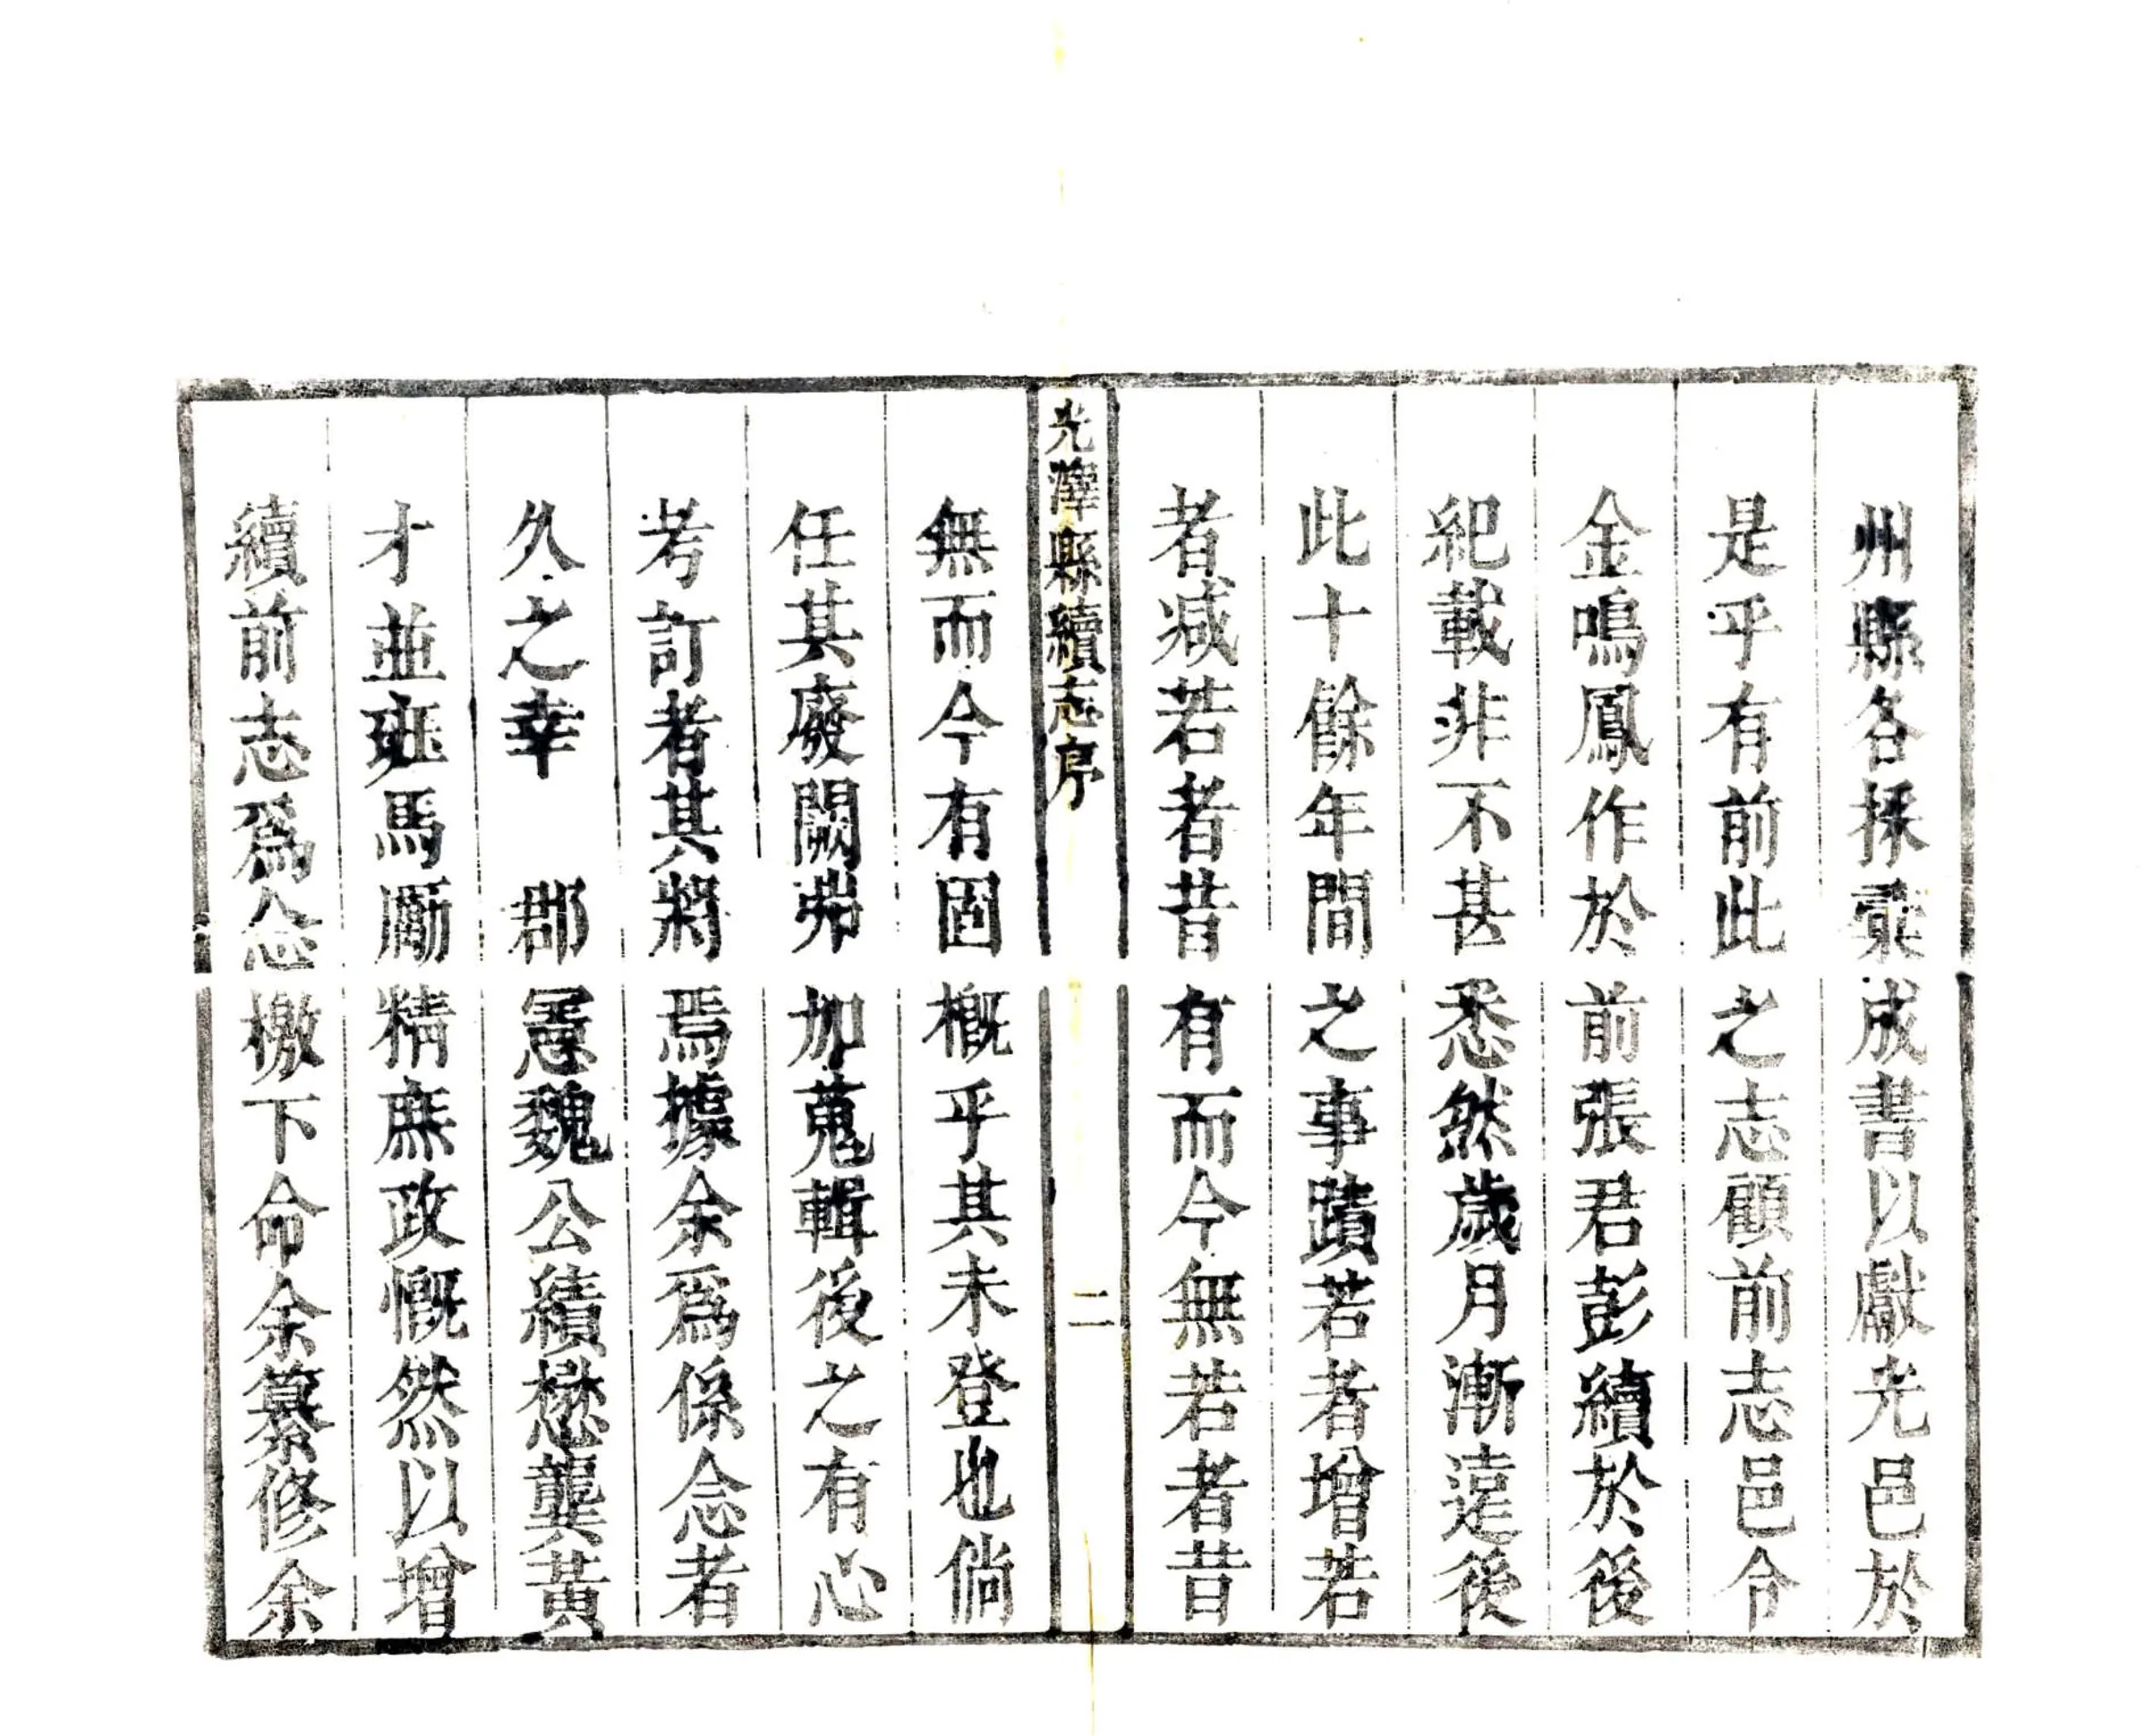 州縣各採彙成書以獻光邑於
是乎有前此之志顧前志邑令
金鳴鳳作於前張君彭續於後
紀載非不甚悉然歲月漸遠後
此十餘年間之事蹟若者增若
者减若者昔有而今無若者昔
光澤縣續志序
二
無而今有固概乎其未登也倘
任其廢闕弗加蒐輯後之有心
考訂者其將焉據余爲係念者
久之幸　郡憲魏公績懋龔黃
才並班馬勵精庶政慨然以增
續前志爲念檄下命余纂修余